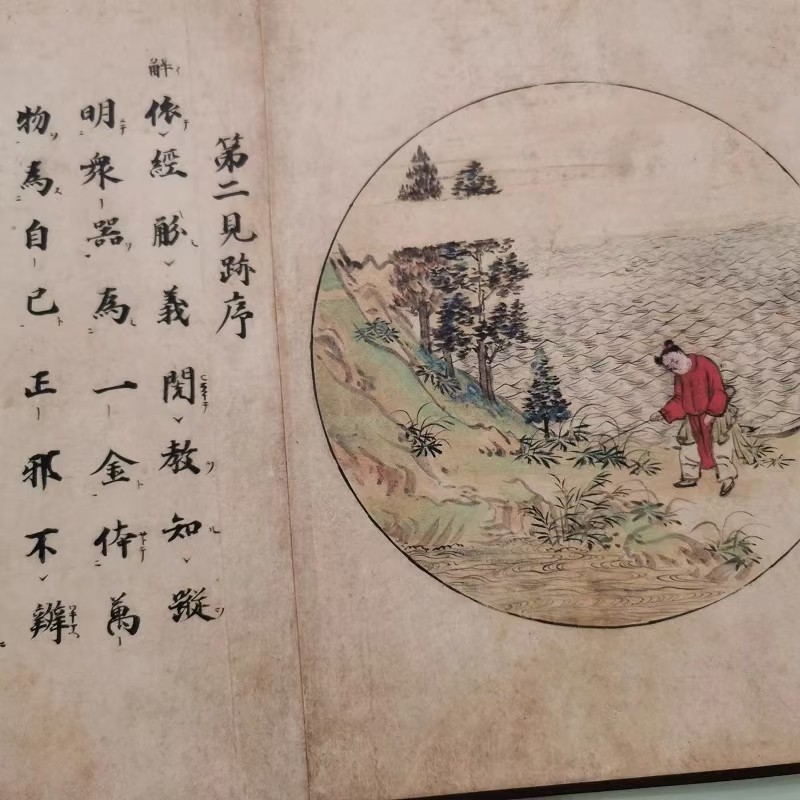 第二見跡序
解イ
依經解義閱教知蹤
明衆器為一金体萬
物為自己正邪不辨